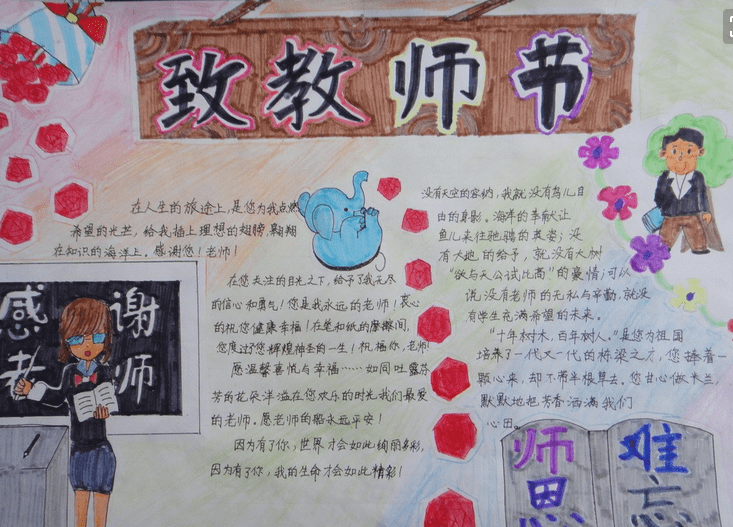 致教师节
在人生的旅途上,是您为我点燃
希望的光芒,给我插上理想的翅膀,翱翔
在知识的海洋上。感谢您!老师!
感谢
老师
在您关注的目光之下,给予了我无尽
的信心和勇气!您是我永远的老师!衷心
的祝您健康幸福!在笔和纸的摩擦间,
您度过了您辉煌神圣的一生!祝福你,老师!
愿温馨喜悦与幸福……如同吐露芬
芳的花朵洋溢在您欢乐的时光我们最爱
的老师。愿老师的福永远平安!
因为有了你,世界才会如此绚丽多彩,
因为有了你,我的生命才会如此精彩!
没有天空的容纳,我就没有鸟儿自
由的身影。海洋的奉献让
鱼儿来往驰骋的英姿;没
有大地的给予,就没有大树
“欲与天公试比高”的豪情;可以
说没有老师的无私与辛勤,就没
有学生充满希望的未来。
“十年树木,百年树人。”是您为祖国
培养了一代又一代的栋梁之才,您捧着一
颗心来,却不带半根草去。您甘心做木兰,
默默地把芳香洒满我们
心田。
师恩
难忘